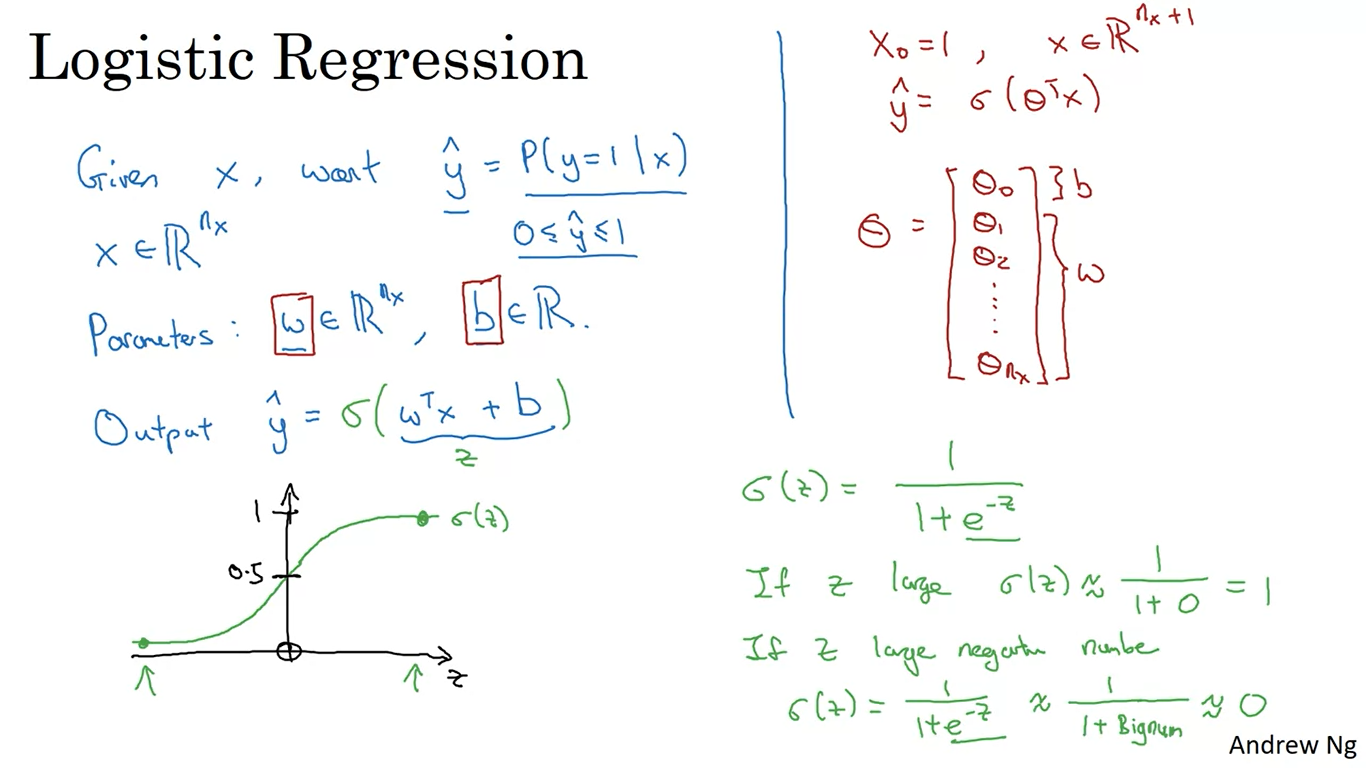 Logistic Regression
Given x, want ŷ = P(y=1|x)
0 ≤ ŷ ≤ 1
x ∈ ℝ^{n_x}
Parameters: w ∈ ℝ^{n_x}, b ∈ ℝ.
Output ŷ = σ(w^T x + b)
z
1
σ(z)
0.5
z
x_0 = 1, x ∈ ℝ^{n_x+1}
ŷ = σ(θ^T x)
θ = [θ_0 θ_1 θ_2 ⋮ θ_{n_x}] } b } w
σ(z) = 1/(1+e^{-z})
If z large σ(z) ≈ 1/(1+0) = 1
If z large negative number
σ(z) = 1/(1+e^{-z}) ≈ 1/(1+Bignum) ≈ 0
Andrew Ng